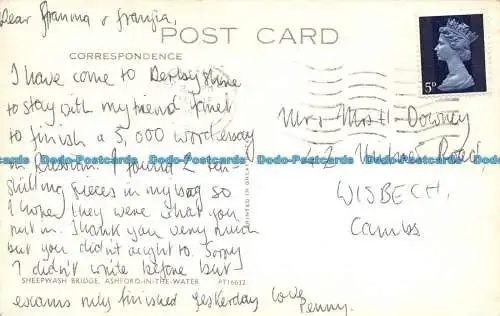 Dear Gramma & Grampa,
POST CARD
CORRESPONDENCE
I have come to Derbyshire
to stay with my friend Janet
to finish a 5,000 word essay
in Russian. I found 2 ten-
shilling pieces in my bag so
I hope they were what you
put in. Thank you very much
but you didn't ought to. Sorry
I didn't write before but
SHEEPWASH BRIDGE, ASHFORD-IN-THE-WATER PT16632
exams only finished yesterday love
Penny.
PRINTED IN GREAT
5D
Mr & Mrs H. Downey
42 Road,
WISBECH,
Cambs
Dodo-Postcards Dodo-Postcards Dodo-Postcards Dodo-Postcards Dodo-Postcards